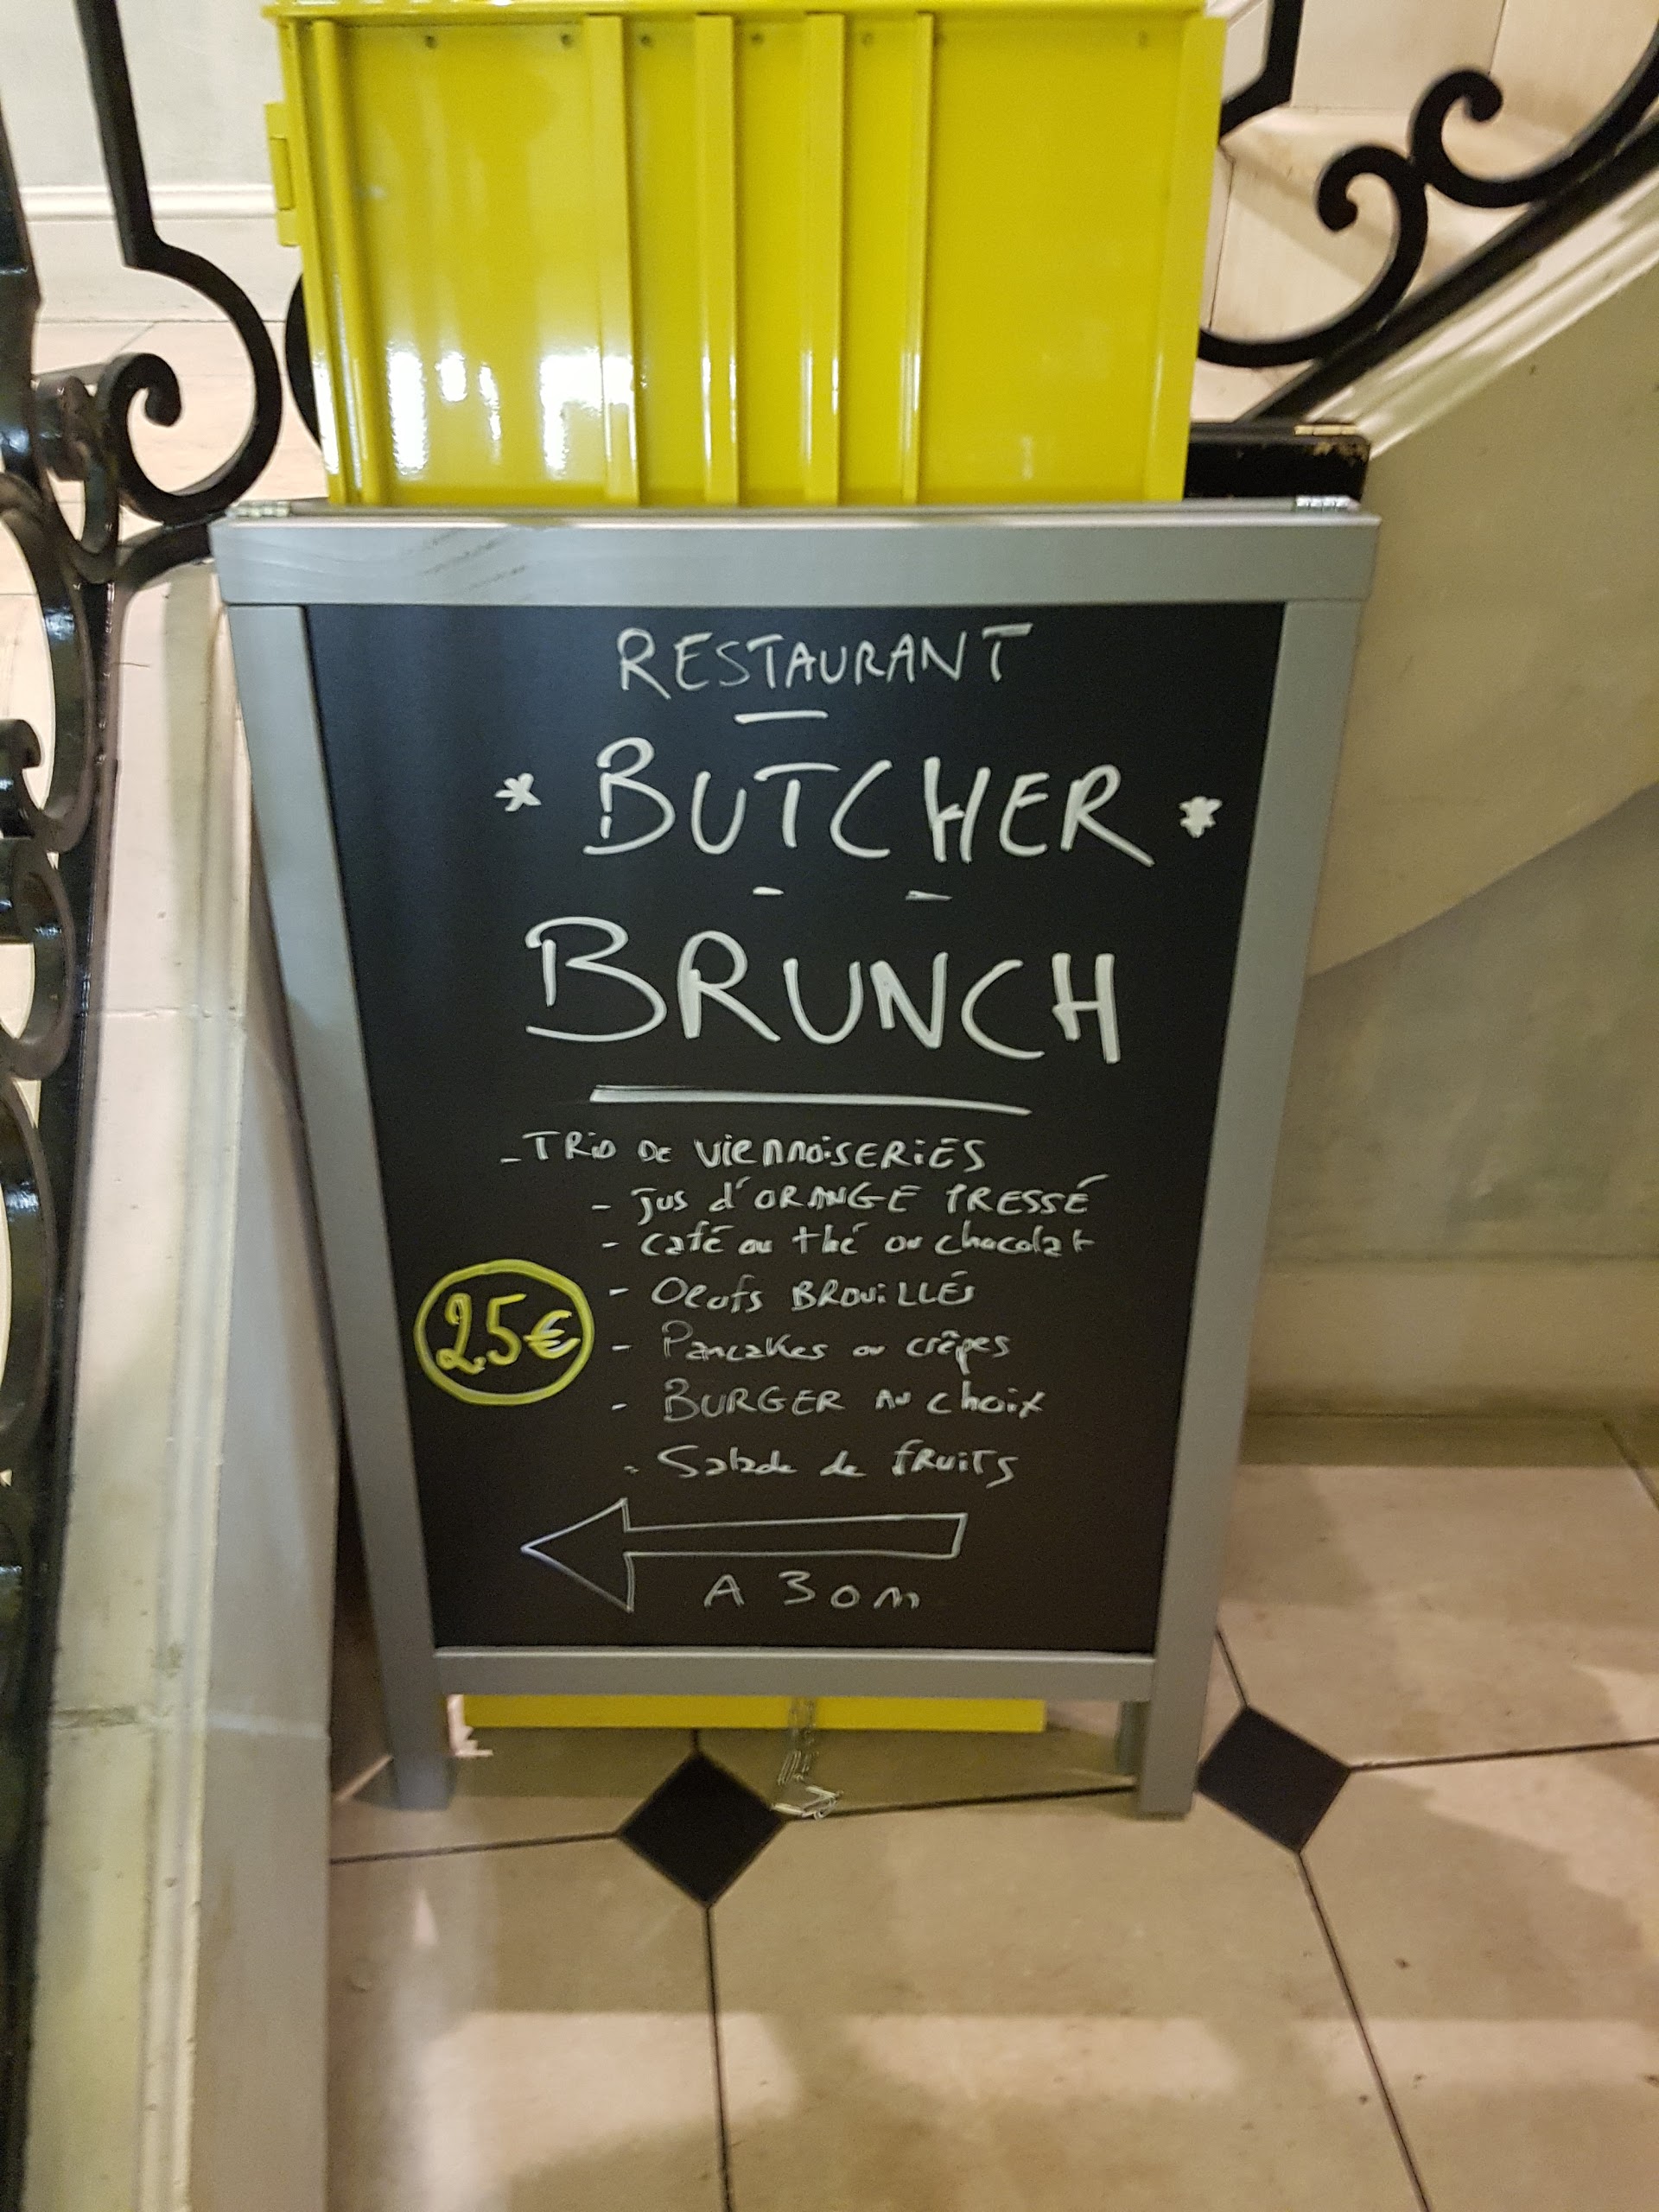 RESTAURANT
* BUTCHER *
BRUNCH
- TRIO DE VIENNOISERIES
- jus d'ORANGE PRESSÉ
- café ou thé ou chocolat
- Oeufs BROUILLÉS
25€
- Pancakes ou crêpes
- BURGER AU choix
- Salade de fRUITS
A 30m